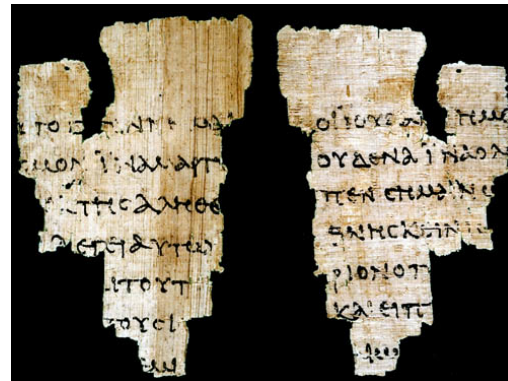 CΜΟΝ ΪΝΑ ΜΑΡΤΥ
ΤΗC ΑΛΗΘΕ
ΛΕΓΕΙ ΑΥΤΩ
ΙΤΟΥΤ
ΟΥCΙ
ΟΙ ΙΟΥΔΑΙ ΗΜΕ
ΟΥΔΕΝΑ ΪΝΑ Ο Λ
ΠΕΝ CΗΜΑΙΝΩ
ΘΝΗCΚΕΙΝ ΙC
ΡΙΟΝ Ο Π
ΚΑΙ ΕΙΠ